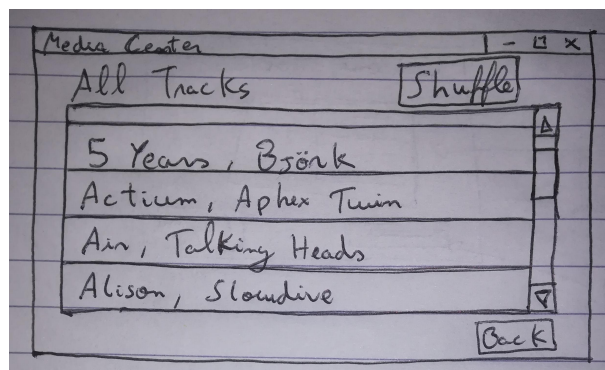 Media Center - □ x
All Tracks Shuffle
5 Years, Björk
Actium, Aphex Twin
Air, Talking Heads
Alison, Slowdive
Back